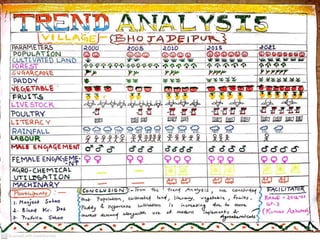 TREND ANALYSIS
VILLAGE - [BHOJADEIPUR]
PARAMETERS 2000 2005 2010 2015 2021
POPULATION
CULTIVATED LAND
FOREST
SUGARCANE
PADDY
VEGETABLE
FRUITS
LIVESTOCK
POULTRY
LITERACY
RAINFALL
LABOUR
MALE ENGAGEMENT
FEMALE ENGAGEMENT
AGRO-CHEMICAL
UTILIZATION
MACHINARY
Participants
1. Manjeet Sahoo
2. Binod Kr. Das
3. Sahoo
CONCLUSION - From the Trend Analysis, we concluded
that Population, cultivated land, literacy, vegetable, fruits,
Paddy & sugarcane cultivation is increasing due to more
market demand alongwith use of modern implements & agrochemicals
FACILITATER
RAWE
GP-3
(Kumar